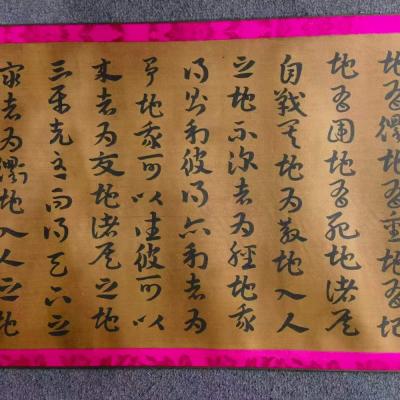 地有衢地有重地有圮
地有圍地有死地諸侯
自戰其地為散地入人
之地不深者為輕地我
得則利彼得亦利者為
爭地我可以往彼可以
來者為交地諸侯之地
三屬先至而得天下之
眾者為衢地入人之地